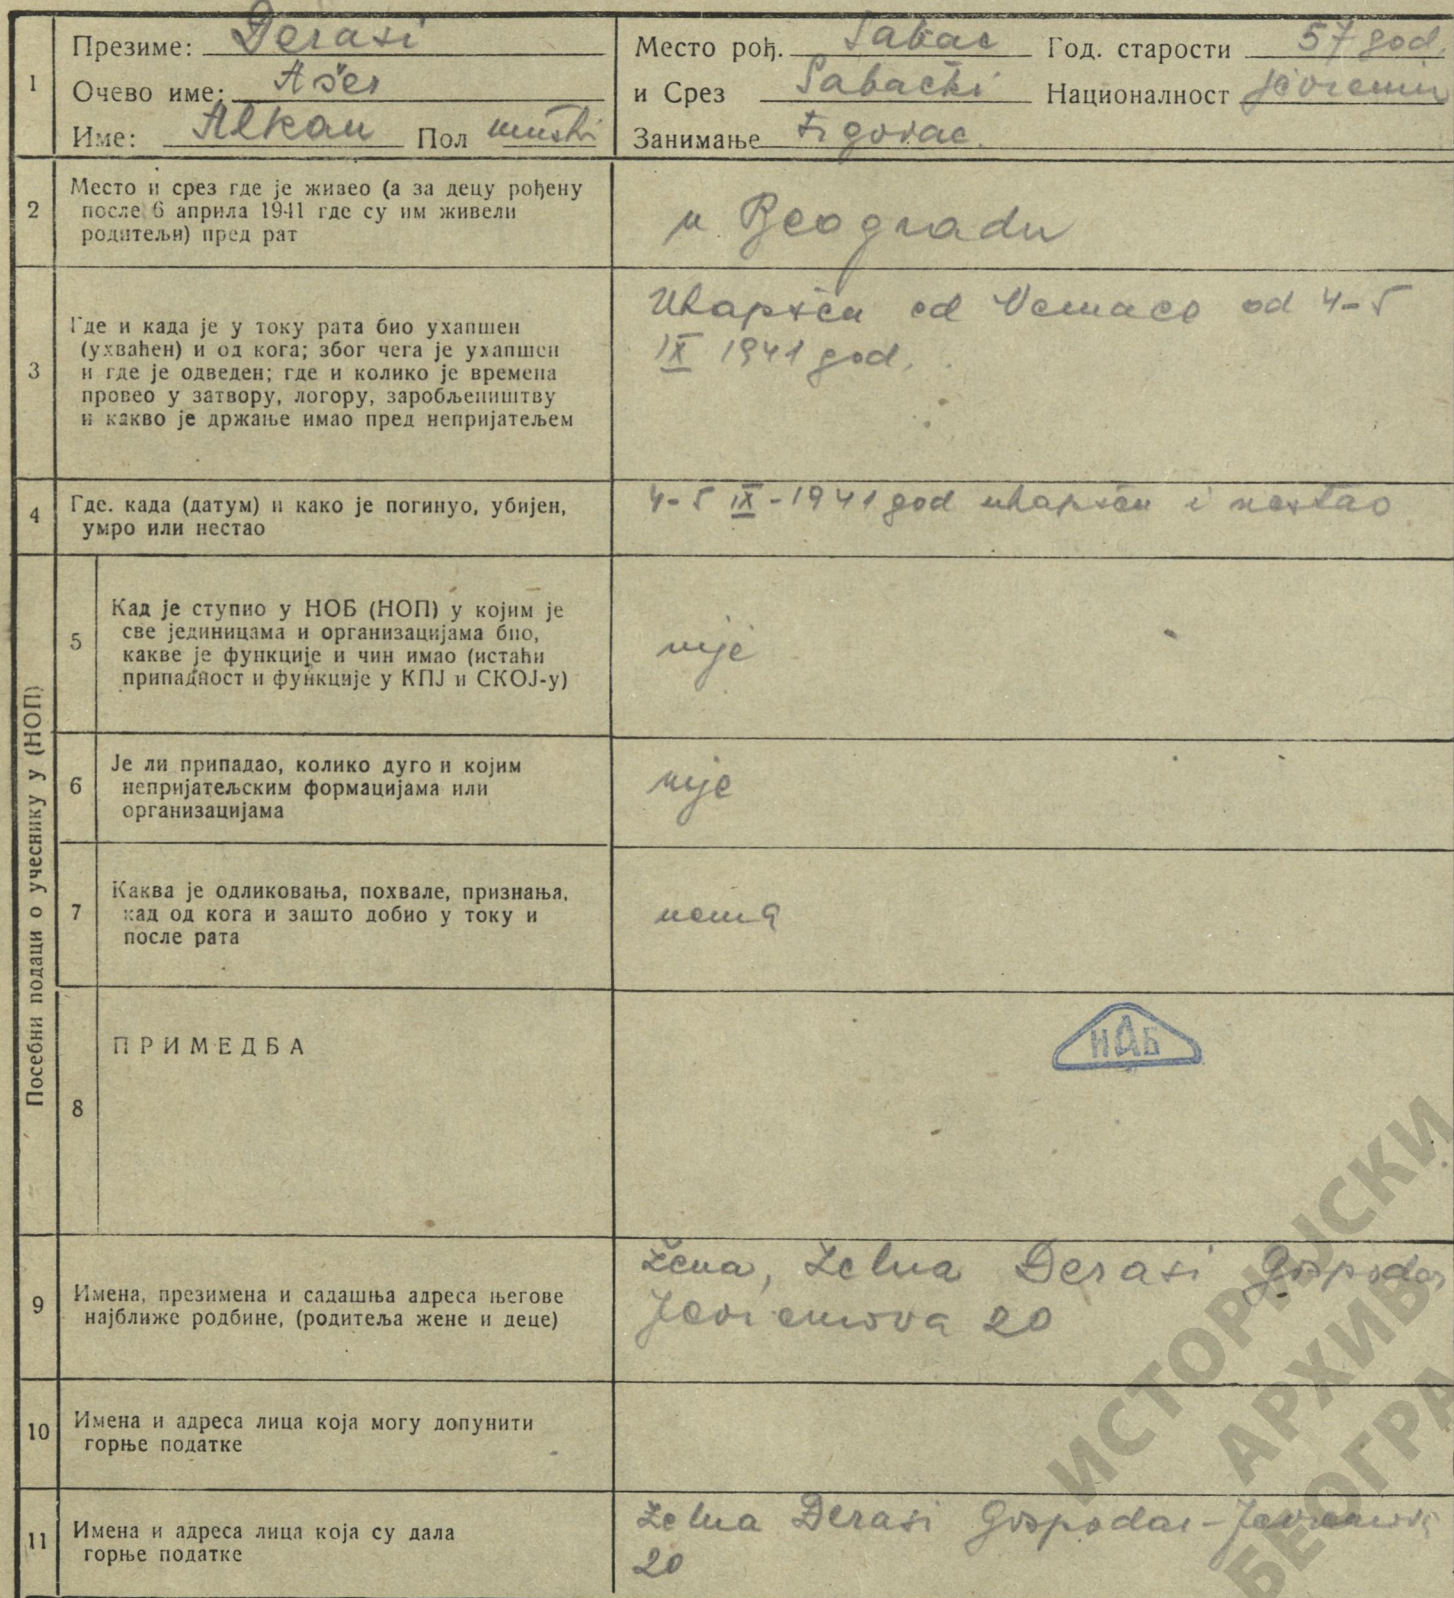 1
Презиме: Đerasi
Очево име: Ašer
Име: Alkan Пол muški
Место рођ. Šabac Год. старости 57 god.
и Срез Šabački Националност Jevrejin
Занимање trgovac
2
Место и срез где је живео (а за децу рођену
после 6 априла 1941 где су им живели
родитељи) пред рат
u Beogradu
3
Где и када је у току рата био ухапшен
(ухваћен) и од кога; због чега је ухапшен
и где је одведен; где и колико је времена
провео у затвору, логору, заробљеништву
и какво је држање имао пред непријатељем
Uhapšen od Nemaca od 4-5
IX 1941 god.
4
Где. када (датум) и како је погинуо, убијен,
умро или нестао
4-5 IX - 1941 god uhapšen i nestao
Посебни подаци о учеснику у (НОП)
5
Кад је ступио у НОБ (НОП) у којим је
све јединицама и организацијама био,
какве је функције и чин имао (истаћи
припадност и функције у КПЈ и СКОЈ-у)
nije
6
Је ли припадао, колико дуго и којим
непријатељским формацијама или
организацијама
nije
7
Каква је одликовања, похвале, признања,
кад од кога и зашто добио у току и
после рата
nema
8
ПРИМЕДБА
ИАБ
9
Имена, презимена и садашња адреса његове
најближе родбине, (родитеља жене и деце)
žena, Đerasi Gospodar
Jevremova 20
10
Имена и адреса лица која могу допунити
горње податке
11
Имена и адреса лица која су дала
горње податке
Đerasi Gospodar-Jevremova
20
ИСТОРИЈСКИ
АРХИВ
БЕОГРА